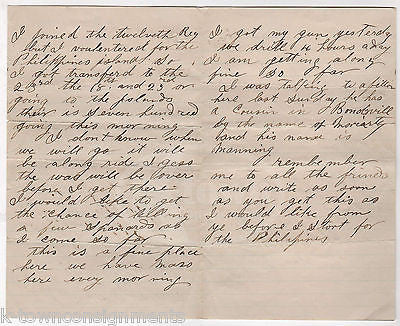 I joined the twelveth Reg
but I vouentered for the
Philippines island So
I got transferd to the
23rd the 18 and 23 or
going to the islands
their is seven hundred
going this morning
I don't know when
we will go it will
be along ride I gess
the was will be over
before I get there
I would like to get
the chance of killing
a few Spaniards as
I come so far
this is a fine place
here we have mass
here every morning
I got my gun yesterday
we drill 4 hours aday
I am getting along
fine so far
I was talking to a
here last Sunday he has
a Cousin in Bondsvill
by the name of Moriarty
and his name is
Manning
remember
me to all the friends
and write as soon
as you get this as
I would like from
ye before I start for
the Philipines
k-townconsignments